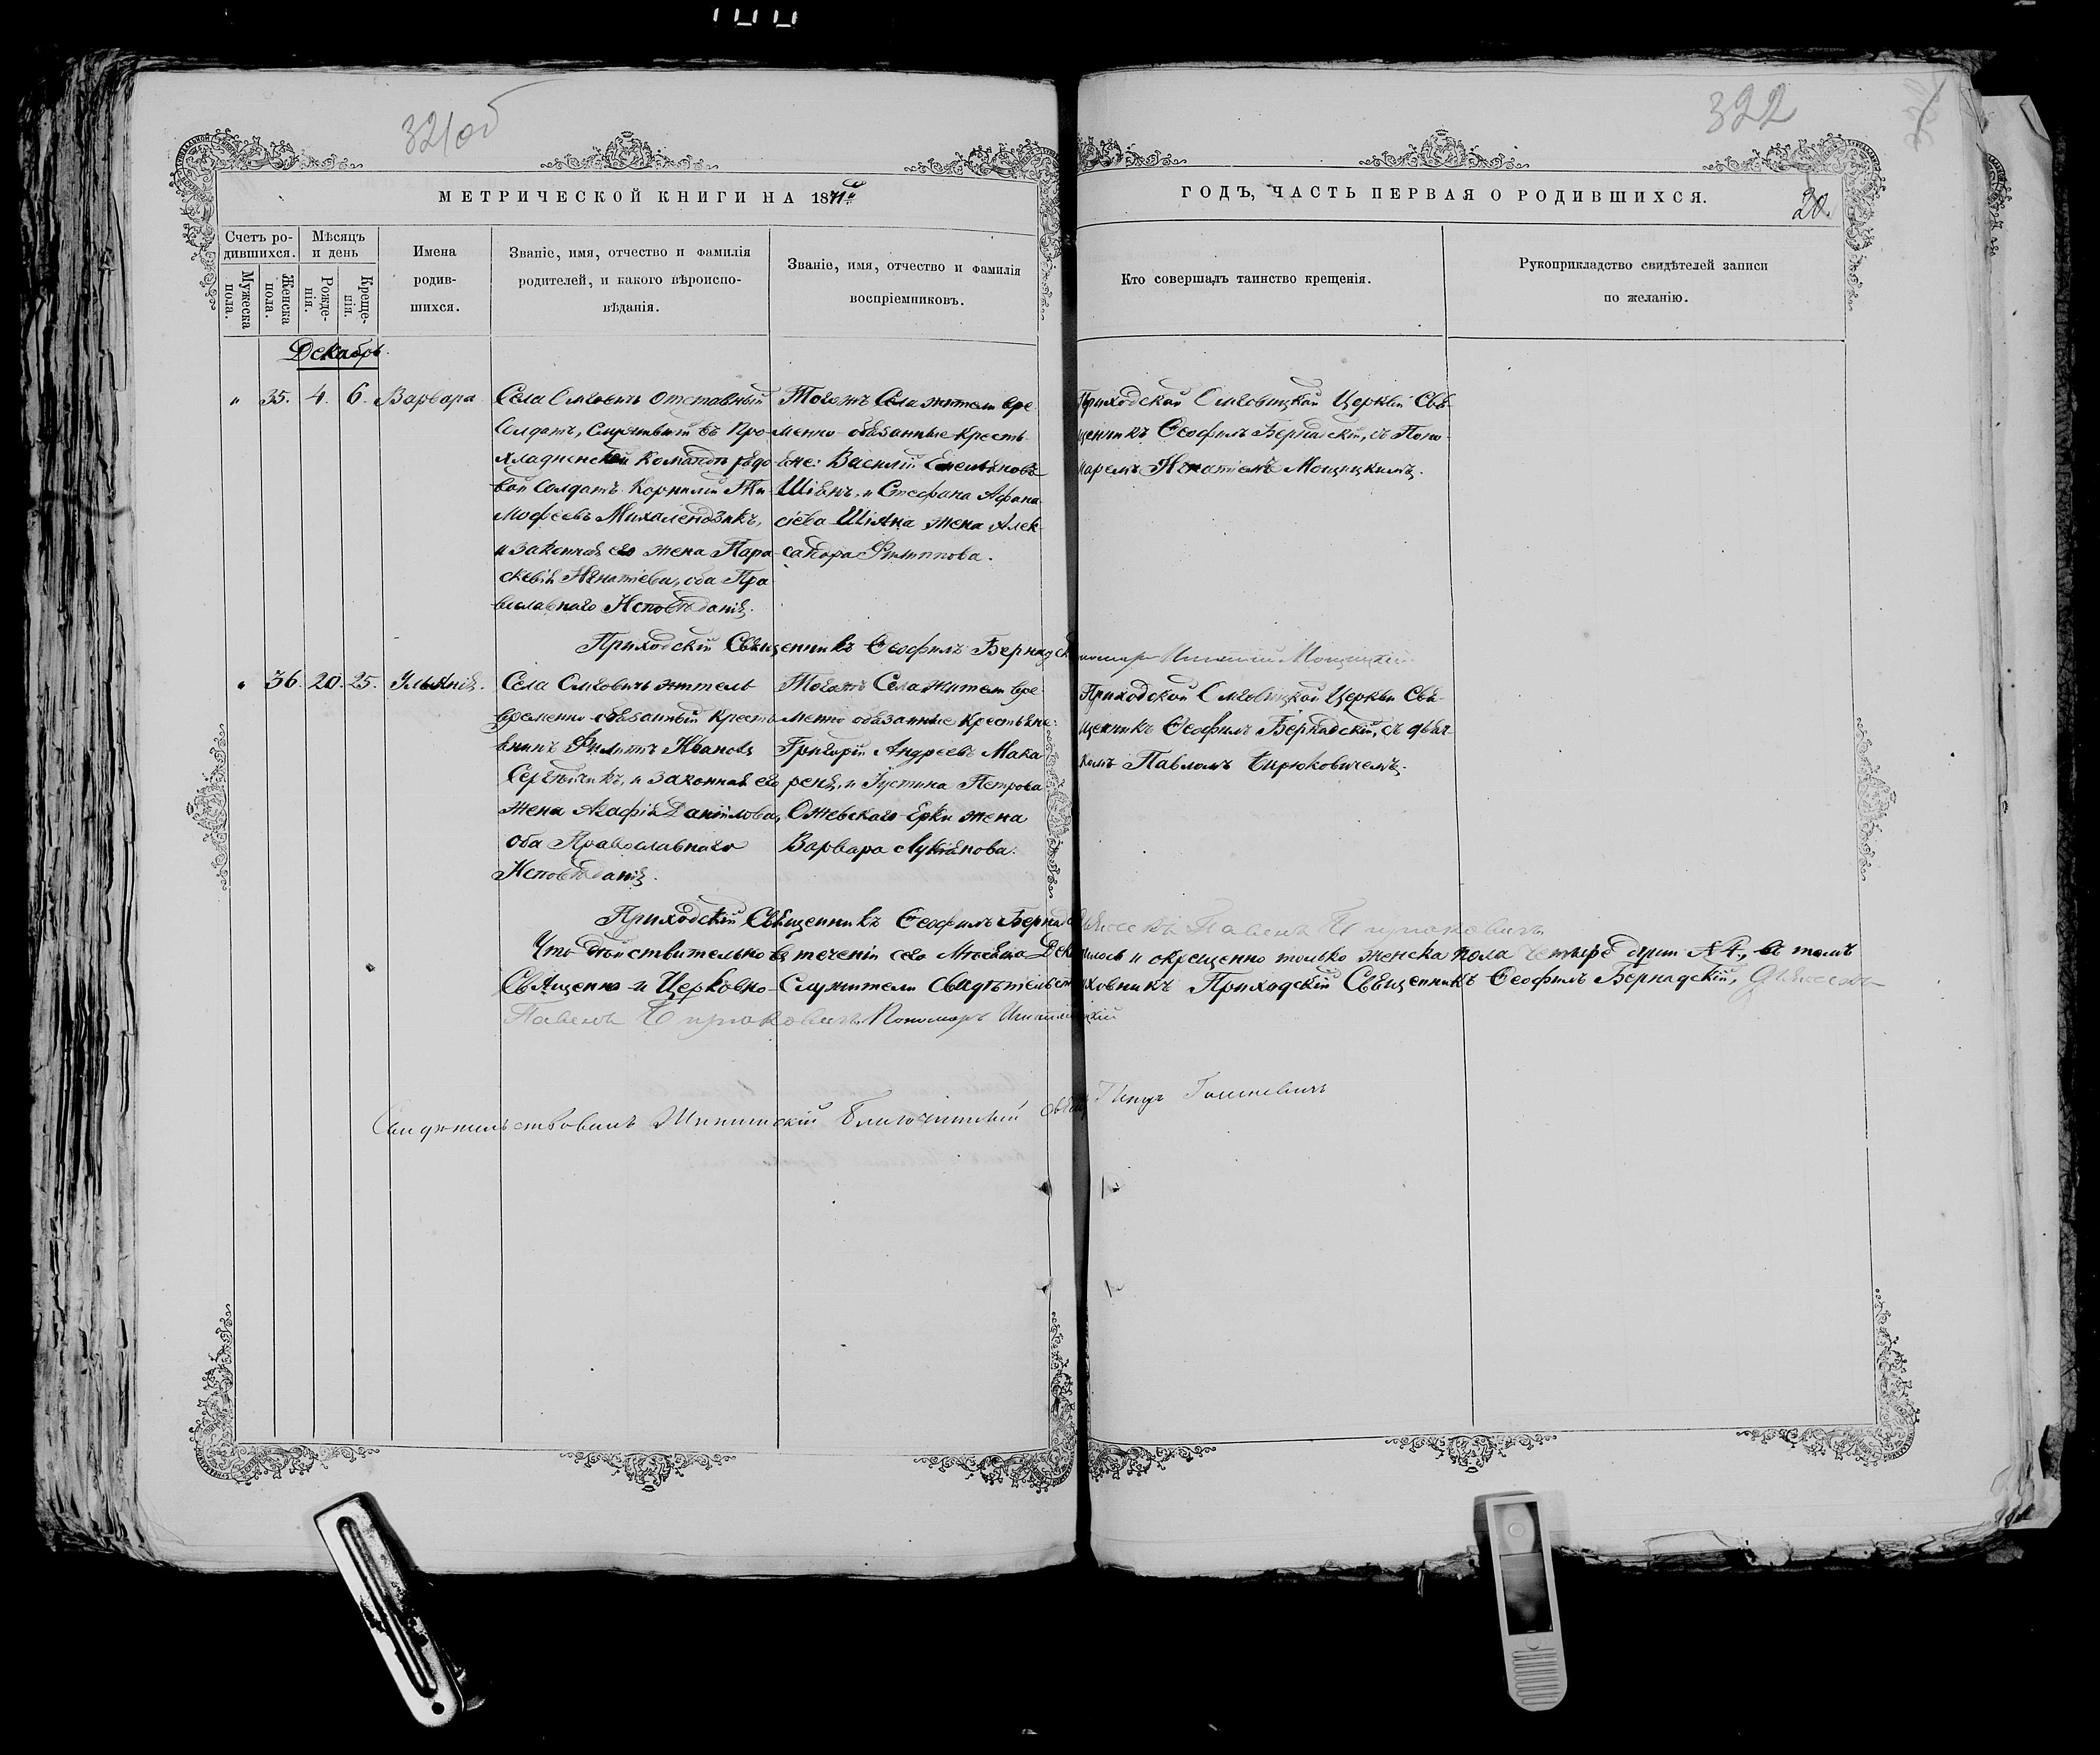 321об
322
МЕТРИЧЕСКОЙ КНИГИ НА 1871й
ГОДЪ, ЧАСТЬ ПЕРВАЯ О РОДИВШИХСЯ.
20.
Счетъ ро-
дившихся.
Мѣсяцъ
и день
Мужеска
пола.
Женска
пола.
Рожде-
нія.
Креще-
нія.
Имена
родив-
шихся.
Званіе, имя, отчество и фамилія
родителей, и какого вѣроиспо-
вѣданія.
Званіе, имя, отчество и фамилія
воспріемниковъ.
Кто совершалъ таинство крещенія.
Рукоприкладство свидѣтелей записи
по желанію.
Декабрь.
" 35. 4. 6. Варвара
Села отставный
Солдатъ, въ Про-
хладненской Командѣ рядо
вой Солдатъ Корнилій Ти-
мофеевъ Михалендзикъ,
и законная его жена Пара-
скевія Игнатіева, оба Пра
вославного Исповѣданія.
Тогожъ Села жители вре
менно-обязанные кресть-
яне: Василій Емельяновъ
Шіянъ, и Стефана Афана
сіева Шіяна жена Алек-
сандра Филиппова.
Приходской Церкви Свя-
щенникъ Ѳеофилъ Бернадскій, съ Поно-
маремъ Игнатіемъ Мощицкимъ.
Приходскій Священникъ Ѳеофилъ Бернадск
Игнатій Мощицкій
" 36. 20. 25. Ульянія.
Села житель
временно-обязанный кресть-
янинъ Филиппъ Ивановъ
и законная его
жена Агафія Даніилова,
оба Православнаго
Исповѣданія.
Тогожъ Села жители вре
менно обязанные крестьяне:
Григорій Андреевъ Мака
реня, и Густина Петрова
Ожевскаго Ерки жена
Варвара Лукіянова.
Приходской Церкви Свя-
щенникъ Ѳеофилъ Бернадскій, съ дьяч-
комъ Павломъ Бирюковичемъ.
Приходскій Священникъ Ѳеофилъ Бернад
Павелъ Бирюковичъ
Что дѣйствительно въ теченіи сего Мѣсяца Дек
илось и окрещенно только женска пола четыре души № 4., въ томъ
Священно- и Церковно-Служители свидѣтельст
Приходскій Священникъ Ѳеофилъ Бернадскій,
Павелъ Бирюковичъ Пономарь
Свидѣтельствовалъ Благочинный